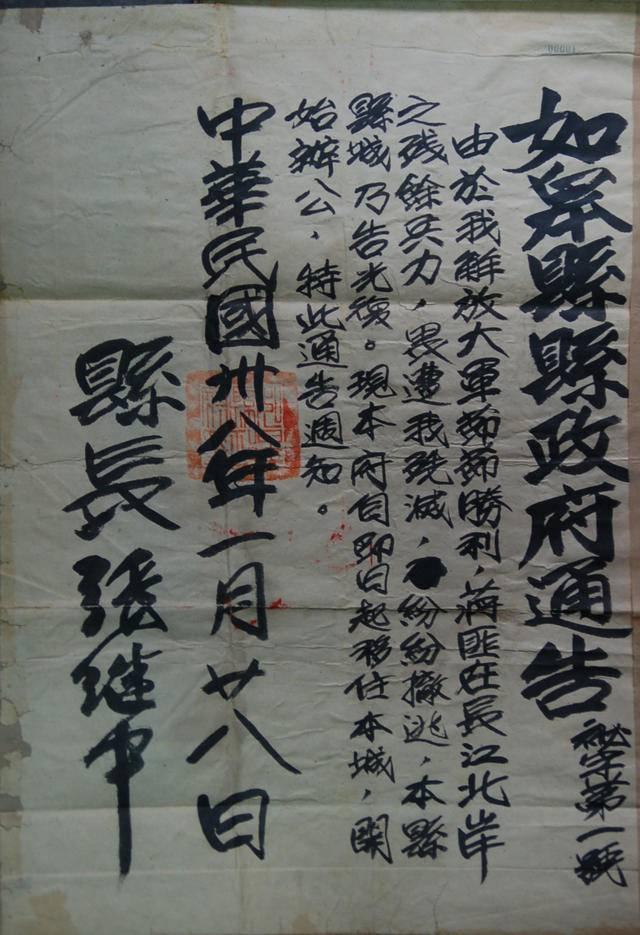 如皋縣縣政府通告
秘字第一號
由於我解放大軍節節勝利，蔣匪在長江北岸
之残餘兵力，畏遭我殲滅，紛紛撤逃，本縣
縣城乃告光復。現本府自即日起移住本城，開
始辦公，特此通告週知。
中華民國卅八年一月廿八日
縣長 張継中
00001